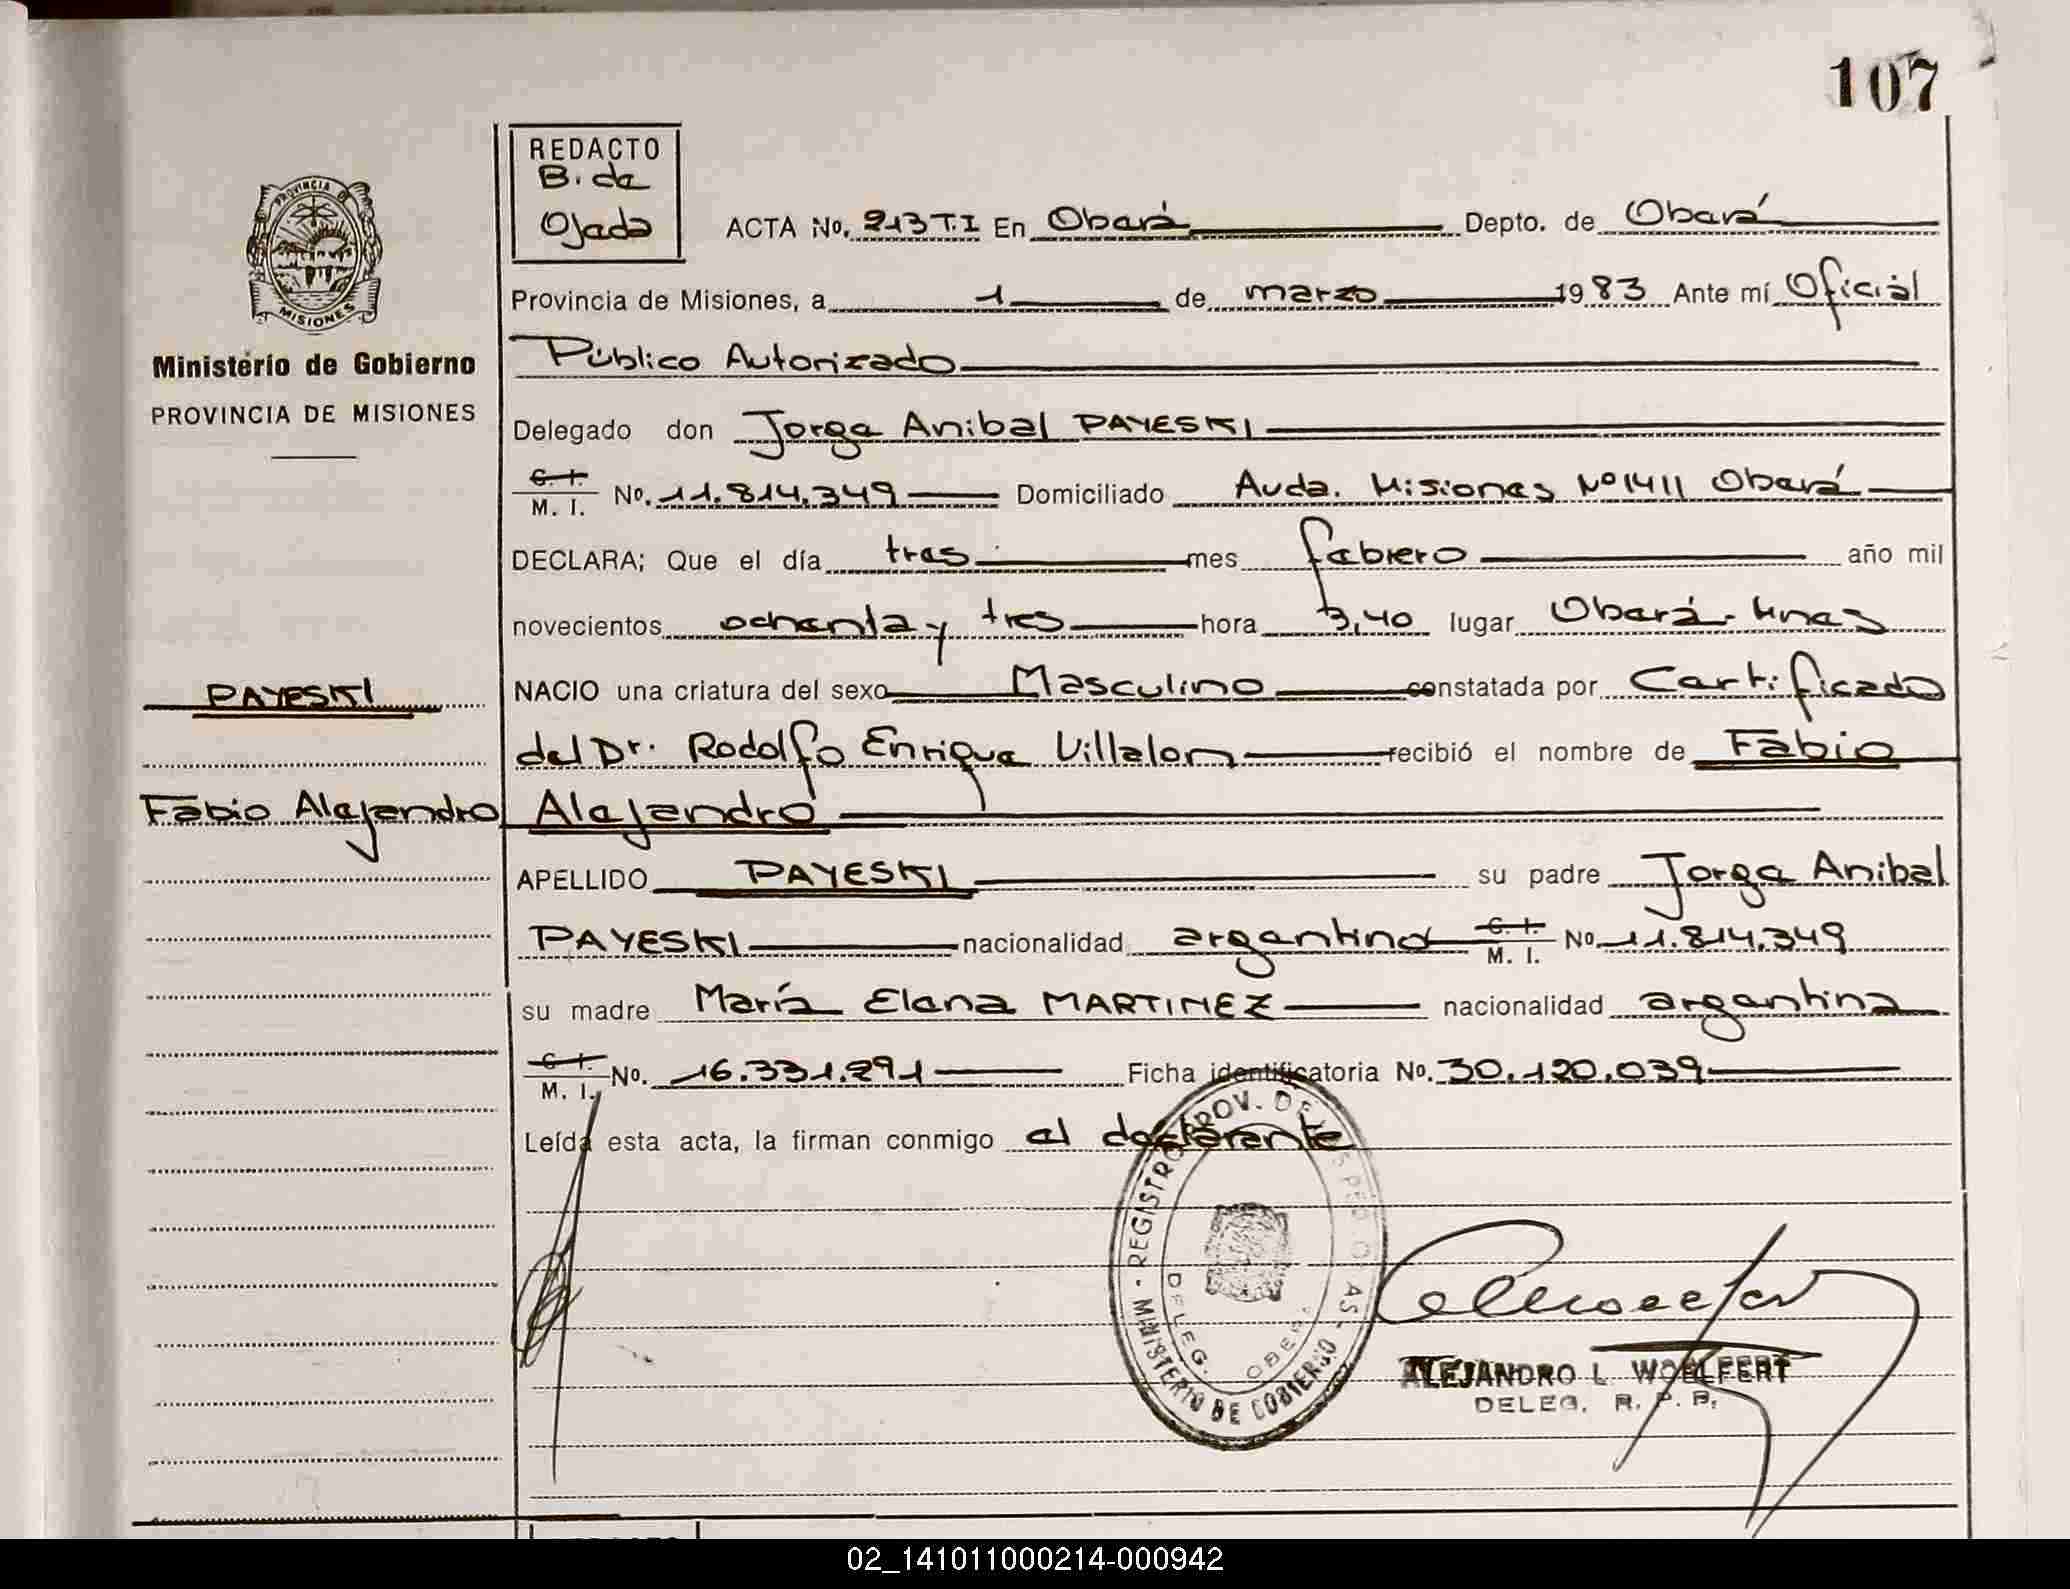 107
REDACTO
B. de
Ojeda
PROVINCIA D
MISIONES
Ministerio de Gobierno
PROVINCIA DE MISIONES
ACTA No. 213 T.I En Oberá Depto. de Oberá
Provincia de Misiones, a 1 de marzo 1983 Ante mí Oficial
Público Autorizado
Delegado don Jorge Anibal PAYESKI
C. I.
M. I. No. 11.814.349 Domiciliado Avda. Misiones Nº 1411 Oberá
DECLARA; Que el día tres mes febrero año mil
novecientos ochenta y tres hora 3,40 lugar Oberá - Mnes
PAYESKI
NACIO una criatura del sexo Masculino constatada por Certificado
del Dr. Rodolfo Enrique Villalon recibió el nombre de Fabio
Fabio Alejandro
Alejandro
APELLIDO PAYESKI su padre Jorge Anibal
PAYESKI nacionalidad argentino C. I.
M. I. No 11.814.349
su madre María Elena MARTINEZ nacionalidad argentina
C. I.
M. I. No. 16.331.291 Ficha identificatoria No. 30.120.039
Leída esta acta, la firman conmigo el declarante
REGISTRO PROV. DE LAS PERSONAS - MINISTERIO DE GOBIERNO -
DELEG. OBERA
ALEJANDRO L. WOELFERT
DELEG. R. P. P.
02_141011000214-000942